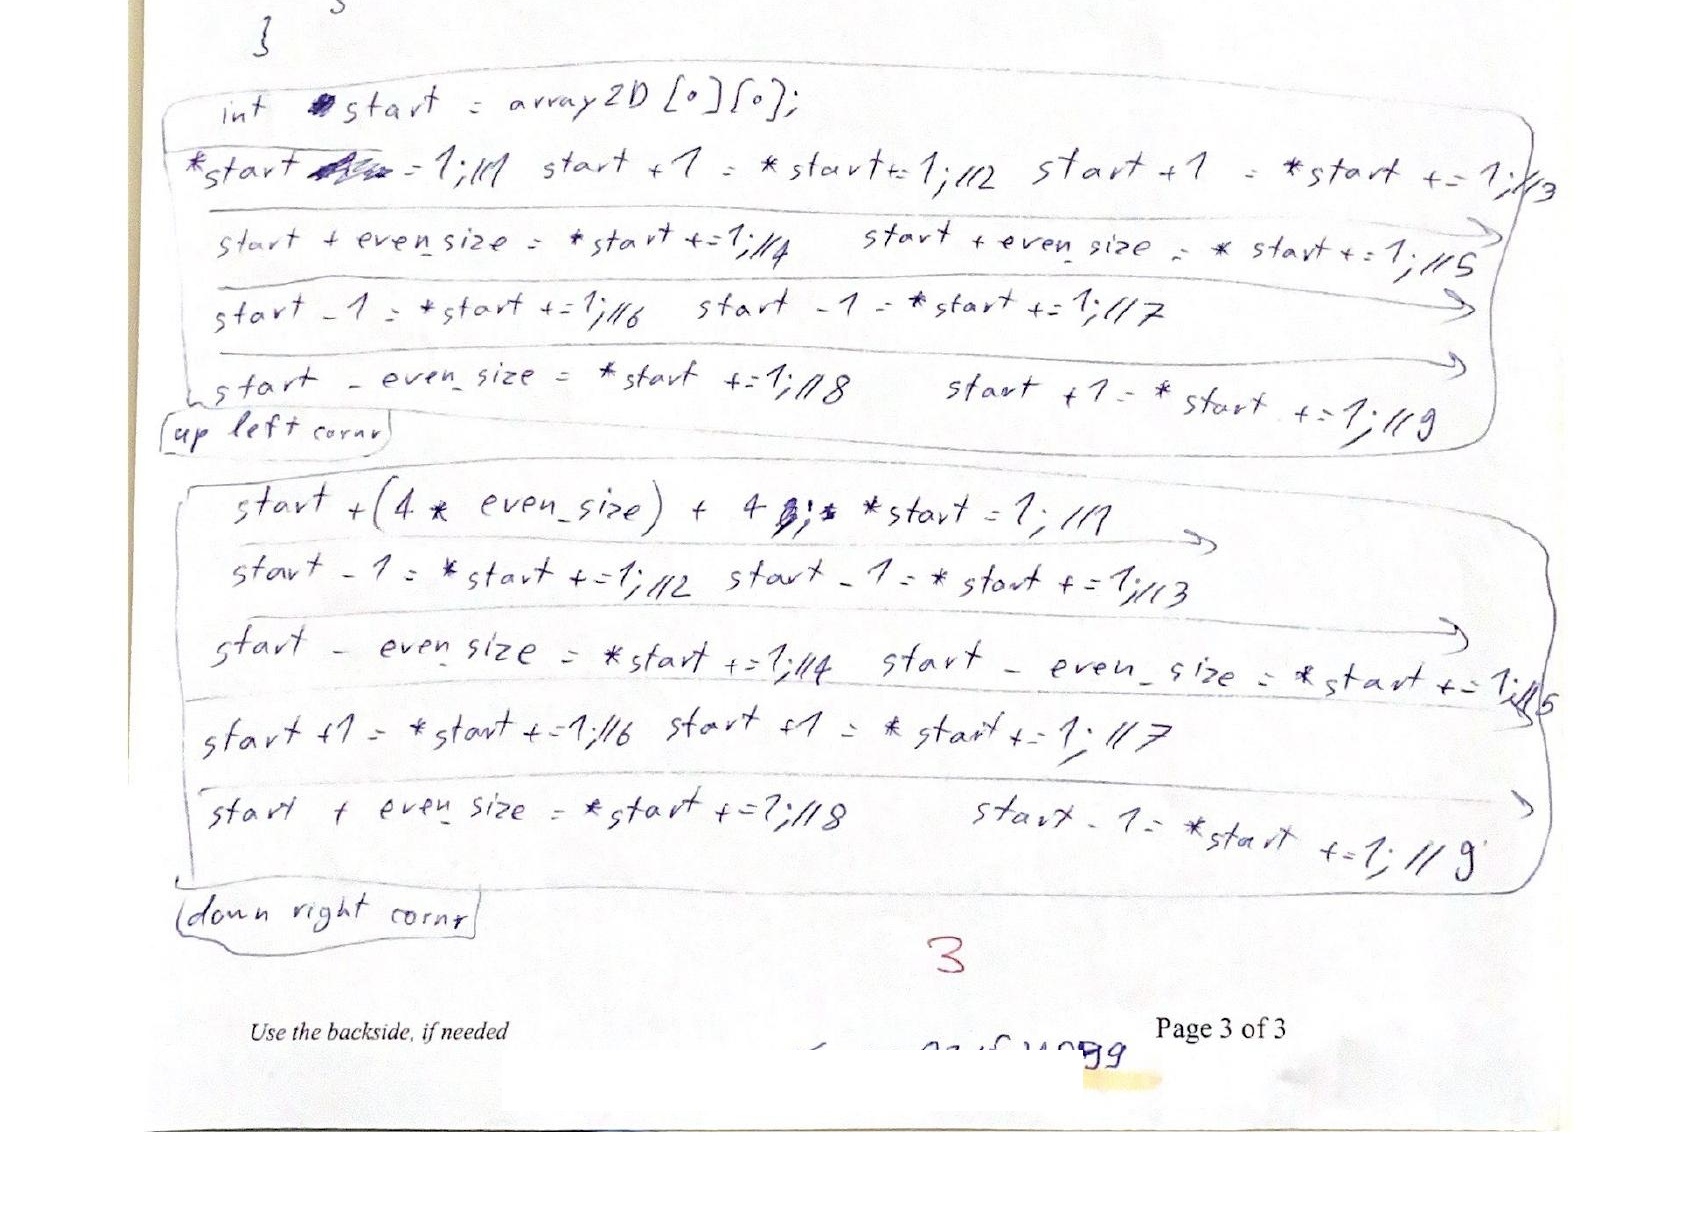 }
int *start = array2D [0][0];
*start = 1; //1 start + 1 = *start += 1; //2 start + 1 = *start += 1; //3
start + even_size = *start += 1; //4 start + even_size = *start += 1; //5
start - 1 = *start += 1; //6 start - 1 = *start += 1; //7
start - even_size = *start += 1; //8 start + 1 = *start += 1; //9
up left cornr
start + (4 * even_size) + 4 ; *start = 1; //1
start - 1 = *start += 1; //2 start - 1 = *start += 1; //3
start - even_size = *start += 1; //4 start - even_size = *start += 1; //5
start + 1 = *start += 1; //6 start + 1 = *start += 1; //7
start + even_size = *start += 1; //8 start - 1 = *start += 1; //9
down right cornr
3
Use the backside, if needed
Page 3 of 3